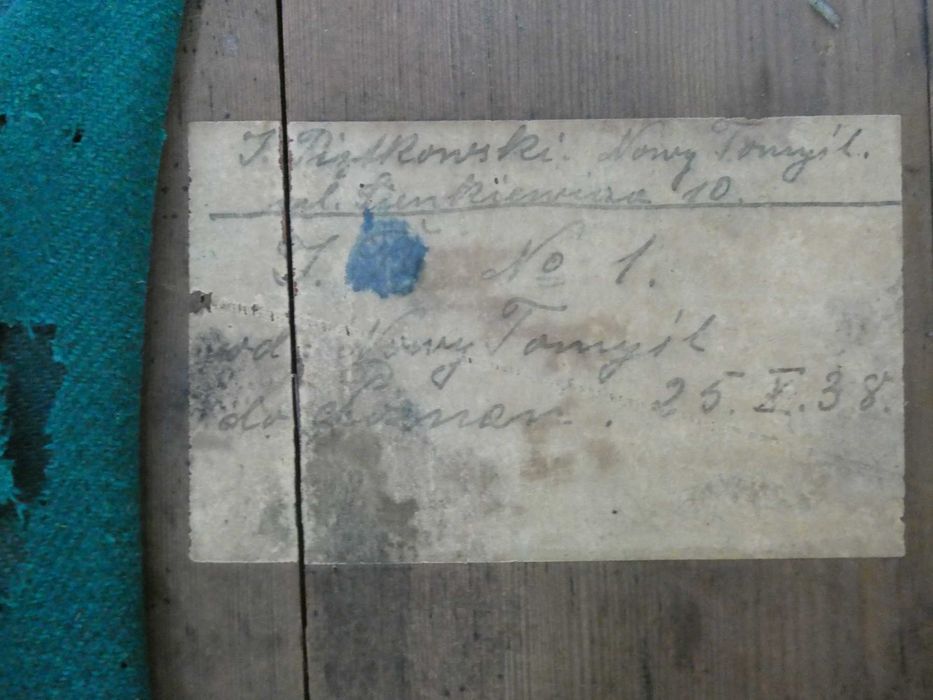 J. Piątkowski. Nowy Tomyśl.
ul. Sienkiewicza 10.
J. No 1.
od Nowy Tomyśl
do Poznań. 25. X. 38.